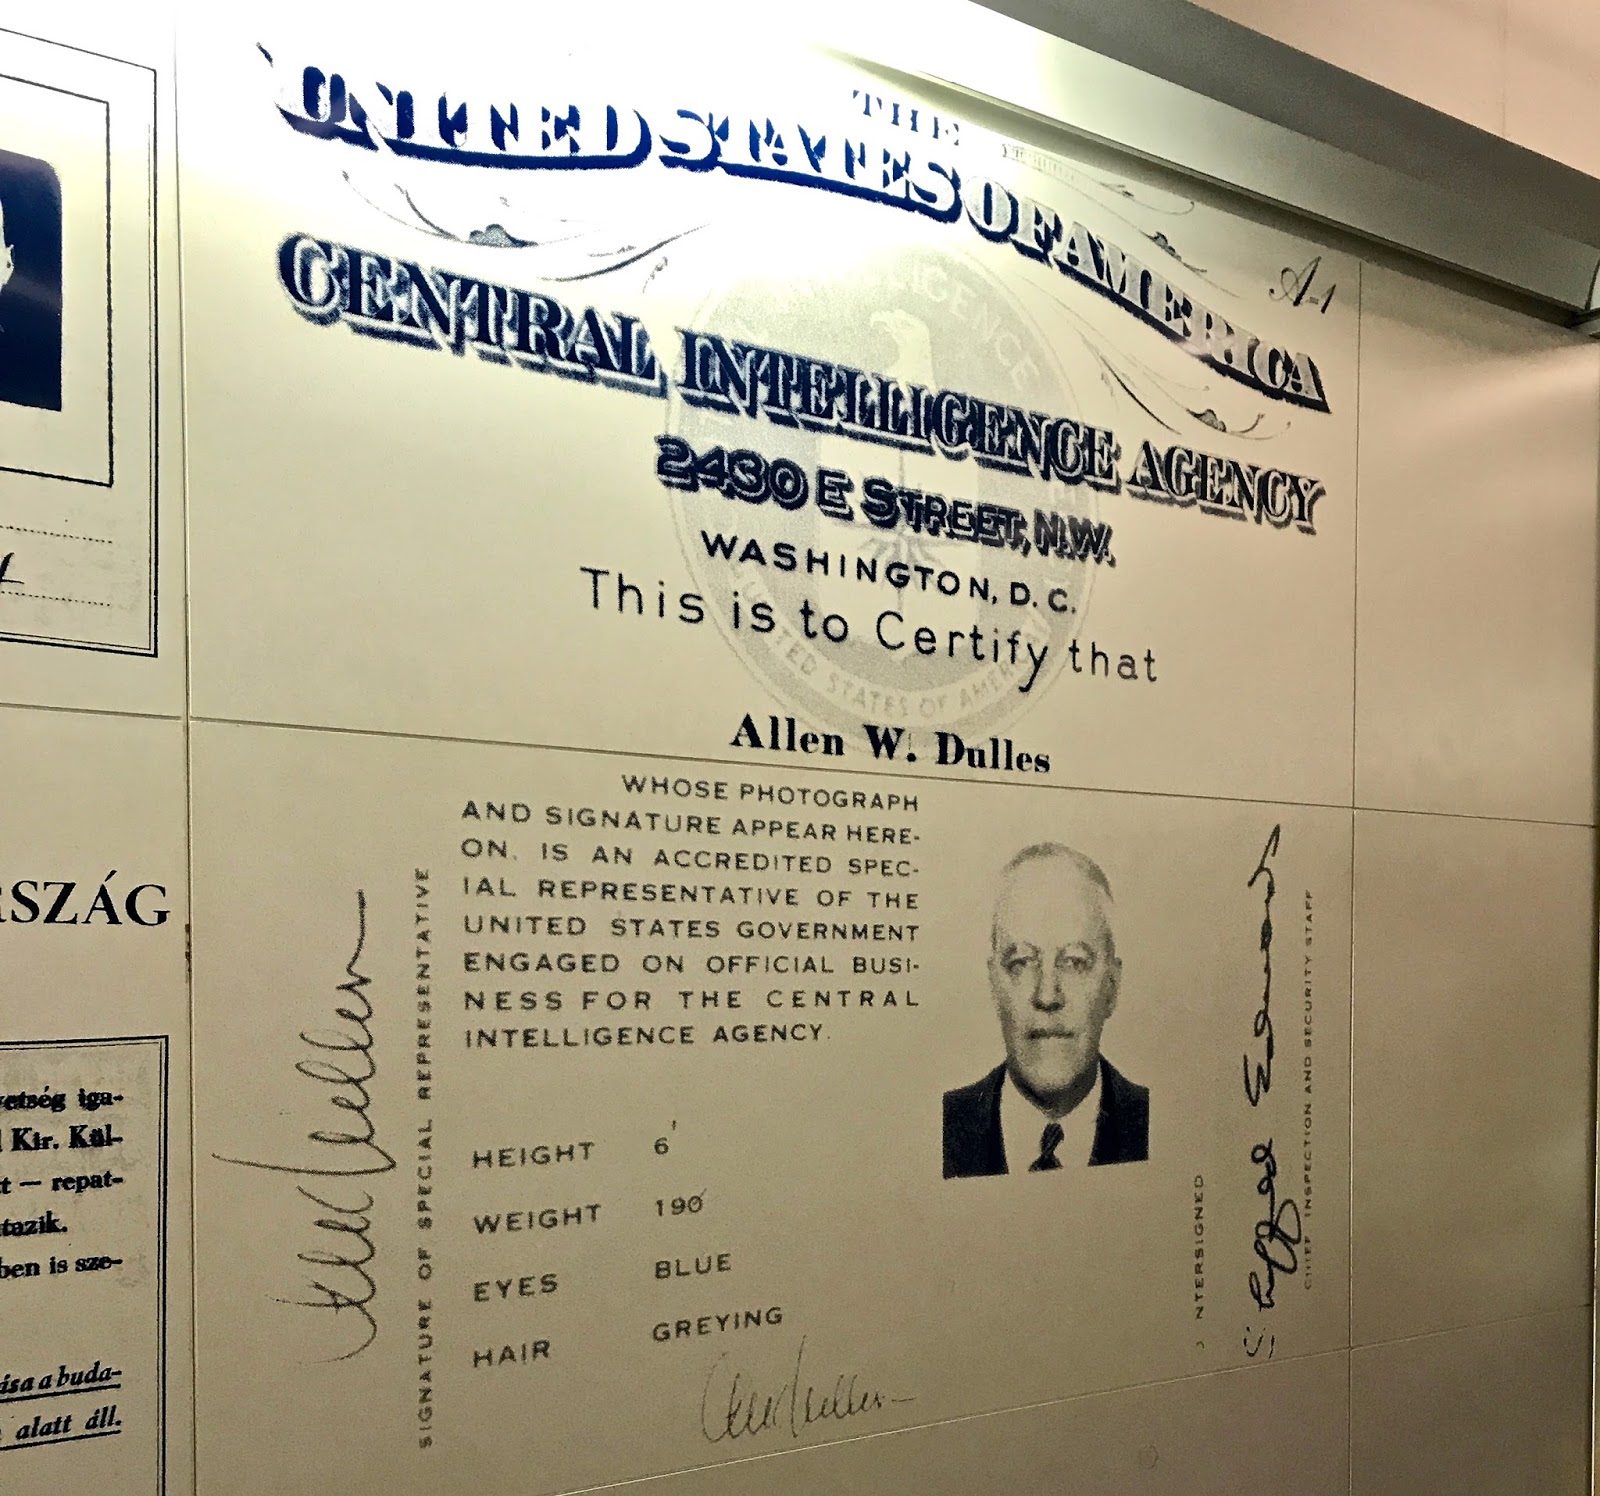 THE
UNITED STATES OF AMERICA
A-1
CENTRAL INTELLIGENCE AGENCY
2430 E STREET, N.W.
WASHINGTON, D. C.
This is to Certify that
UNITED STATES OF AMERICA
Allen W. Dulles
WHOSE PHOTOGRAPH
AND SIGNATURE APPEAR HERE-
ON, IS AN ACCREDITED SPEC-
IAL REPRESENTATIVE OF THE
UNITED STATES GOVERNMENT
ENGAGED ON OFFICIAL BUSI-
NESS FOR THE CENTRAL
INTELLIGENCE AGENCY.
HEIGHT 6'
WEIGHT 190
EYES BLUE
HAIR GREYING
Allen W Dulles
SIGNATURE OF SPECIAL REPRESENTATIVE
Allen W Dulles
NTERSIGNED
Sheffield Edwards
CHIEF INSPECTION AND SECURITY STAFF
RSZÁG
vetség iga-
l Kir. Kül-
tt — repat-
tazik.
ben is sze-
ása a buda-
alatt áll.